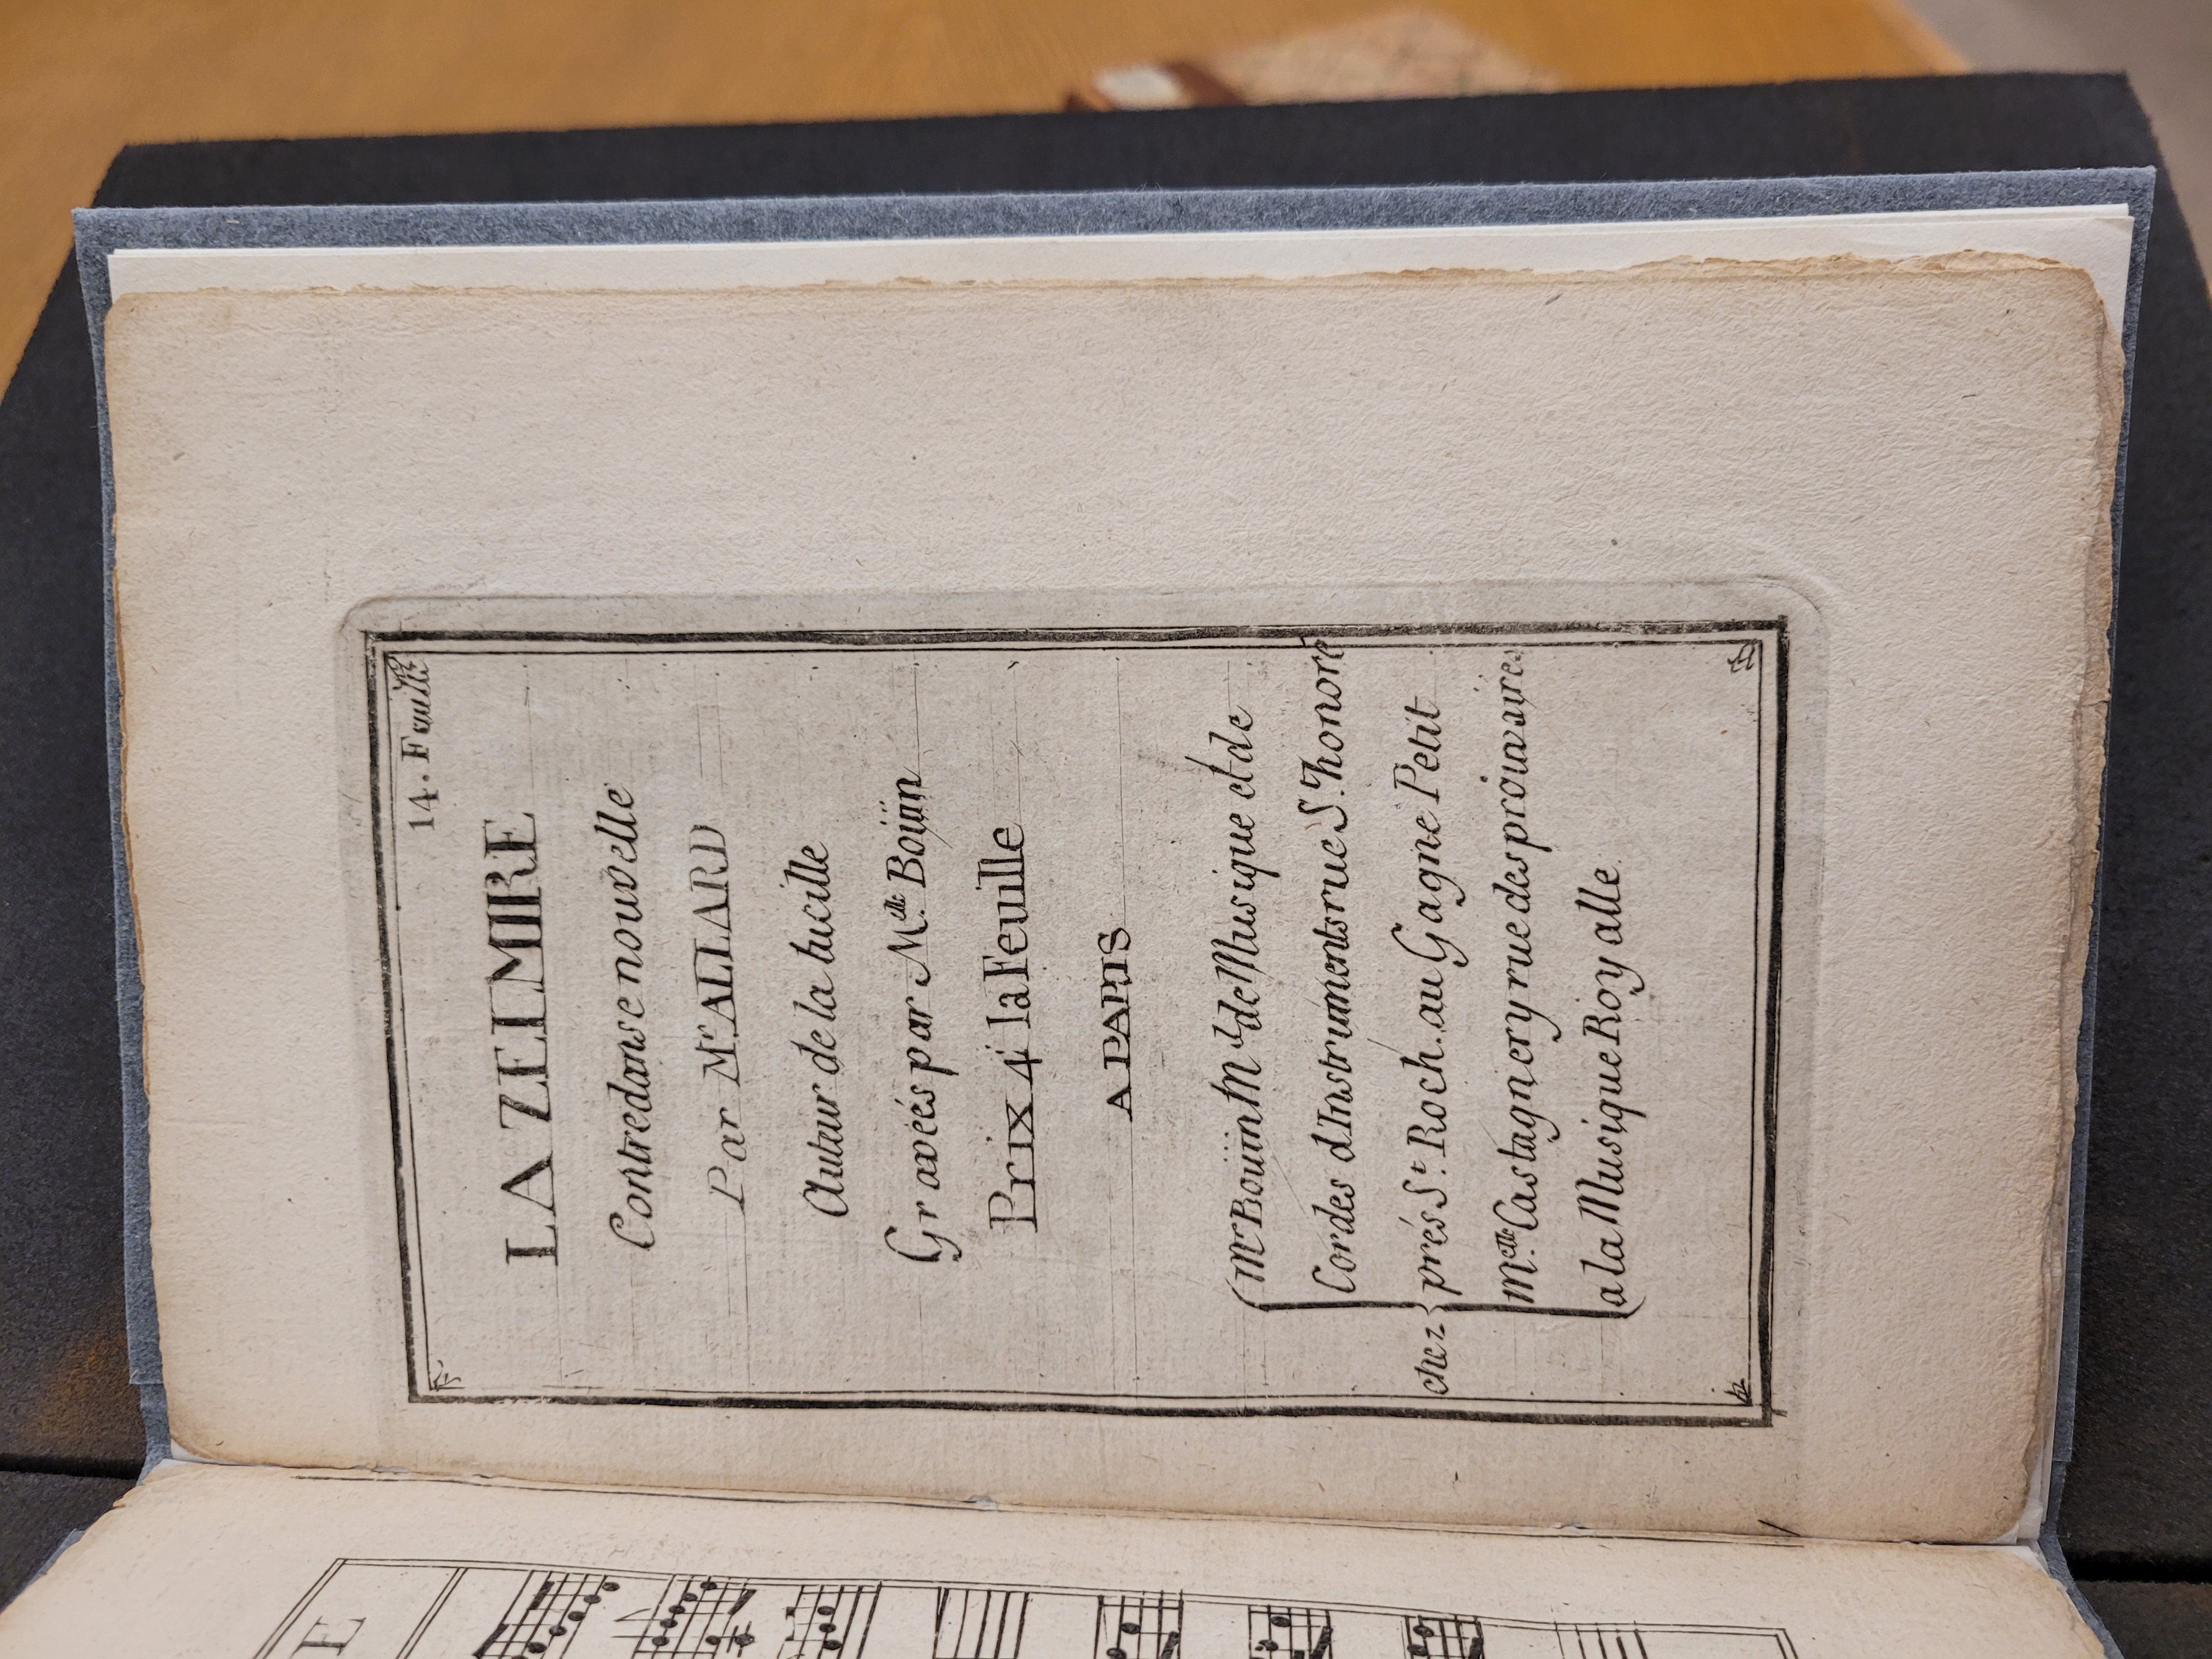 14. Feuille
LA ZEEMIRE
Contredanse nouvelle
Par Mr. ALLARD
Auteur de la Lucille
Gravées par Melle. Boüin
Prix 4s la Feuille
A PARIS
Mr Boüin Md. de Musique et de
Cordes d'Instruments rue St. honoré
chez prés St. Roch. au Gagne Petit
Melle. Castagnery rue des prouvaires
a la Musique Roy alle
E